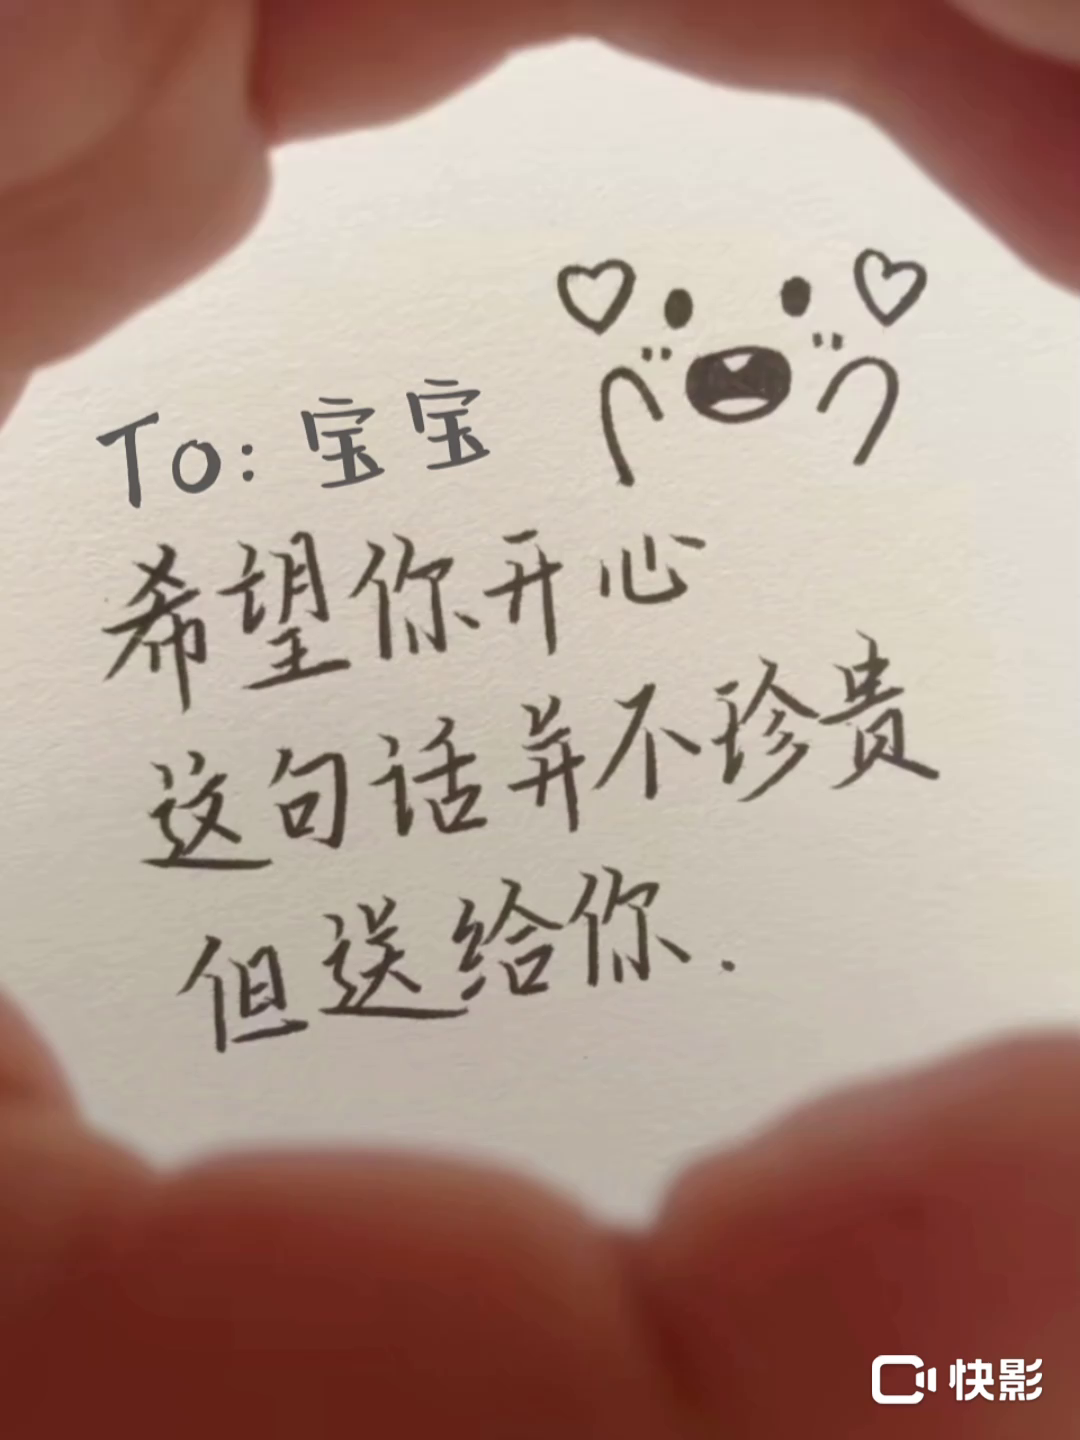 To:宝宝
希望你开心
这句话并不珍贵
但送给你.
快影